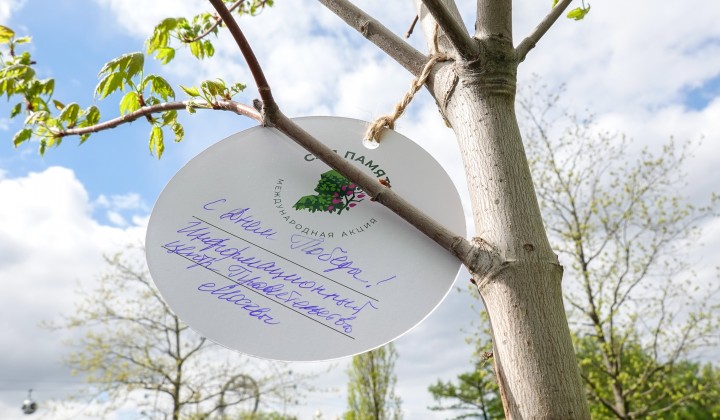 С ПАМЯТ
МЕЖДУНАРОДНАЯ АКЦИЯ
С Днем Победы!
Информационный
центр Правительства
Москвы